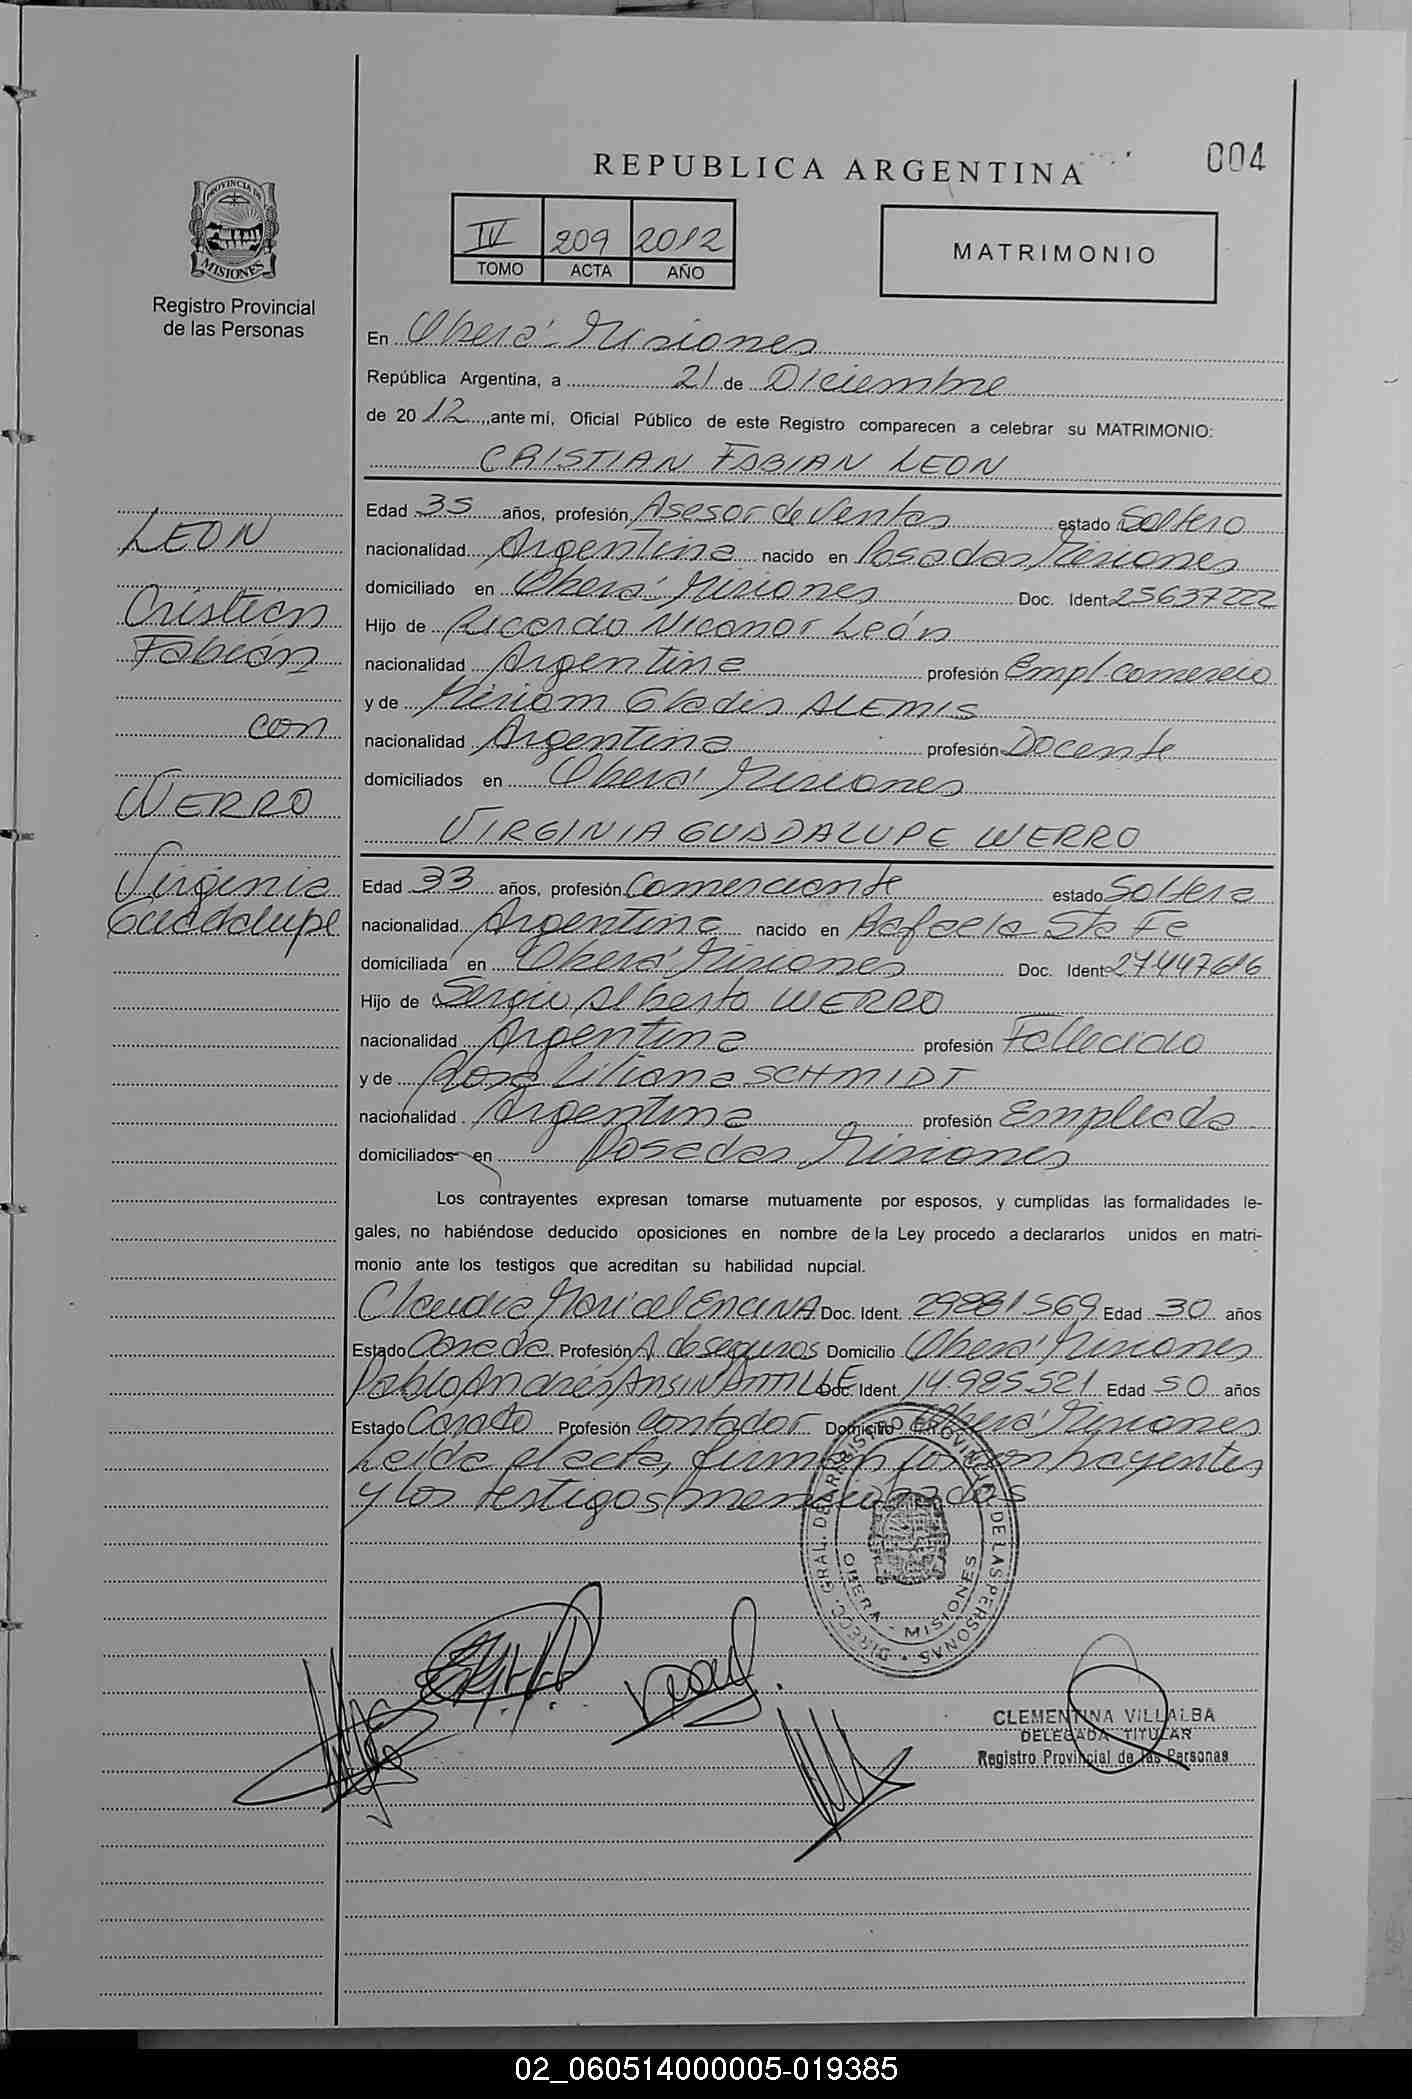 004
REPUBLICA ARGENTINA
PROVINCIA DE
MISIONES
Registro Provincial
de las Personas
IV 209 2012
TOMO ACTA AÑO
MATRIMONIO
En Oberá - Misiones
República Argentina, a 21 de Diciembre
de 2012, ante mí, Oficial Público de este Registro comparecen a celebrar su MATRIMONIO:
CRISTIAN FABIAN LEON
LEON
Cristian
Fabián
con
WERRO
Virginia
Guadalupe
Edad 35 años, profesión Asesor de Ventas estado Soltero
nacionalidad Argentina nacido en Posadas, Misiones
domiciliado en Oberá Misiones Doc. Ident 25637222
Hijo de Ricardo Nicanor León
nacionalidad Argentina profesión Empl comercio
y de Miriam Gladis ALEMIS
nacionalidad Argentina profesión Docente
domiciliados en Oberá Misiones
VIRGINIA GUADALUPE WERRO
Edad 33 años, profesión Comerciante estado Soltera
nacionalidad Argentina nacido en Rafaela Sta Fe
domiciliada en Oberá Misiones Doc. Ident
Hijo de Sergio Alberto WERRO
nacionalidad Argentina profesión Fallecido
y de Rosa Liliana SCHMIDT
nacionalidad Argentina profesión Empleada
domiciliados en Posadas Misiones
Los contrayentes expresan tomarse mutuamente por esposos, y cumplidas las formalidades le-
gales, no habiéndose deducido oposiciones en nombre de la Ley procedo a declararlos unidos en matri-
monio ante los testigos que acreditan su habilidad nupcial.
Claudia Maricel ENCINA Doc. Ident. 29881569 Edad 30 años
Estado Casada Profesión A de seguros Domicilio Oberá Misiones
Pablo Andrés ANSIN ANTILLE Doc. Ident. 14.985.521 Edad 50 años
Estado Casado Profesión Contador Domicilio Oberá Misiones
Leída el acta, firman los contrayentes
y los testigos mencionados
DIRECC. GRAL. DE REGISTRO PROVINCIAL DE LAS PERSONAS
OBERA - MISIONES
CLEMENTINA VILLALBA
DELEGADA TITULAR
Registro Provincial de las Personas
02_060514000005-019385